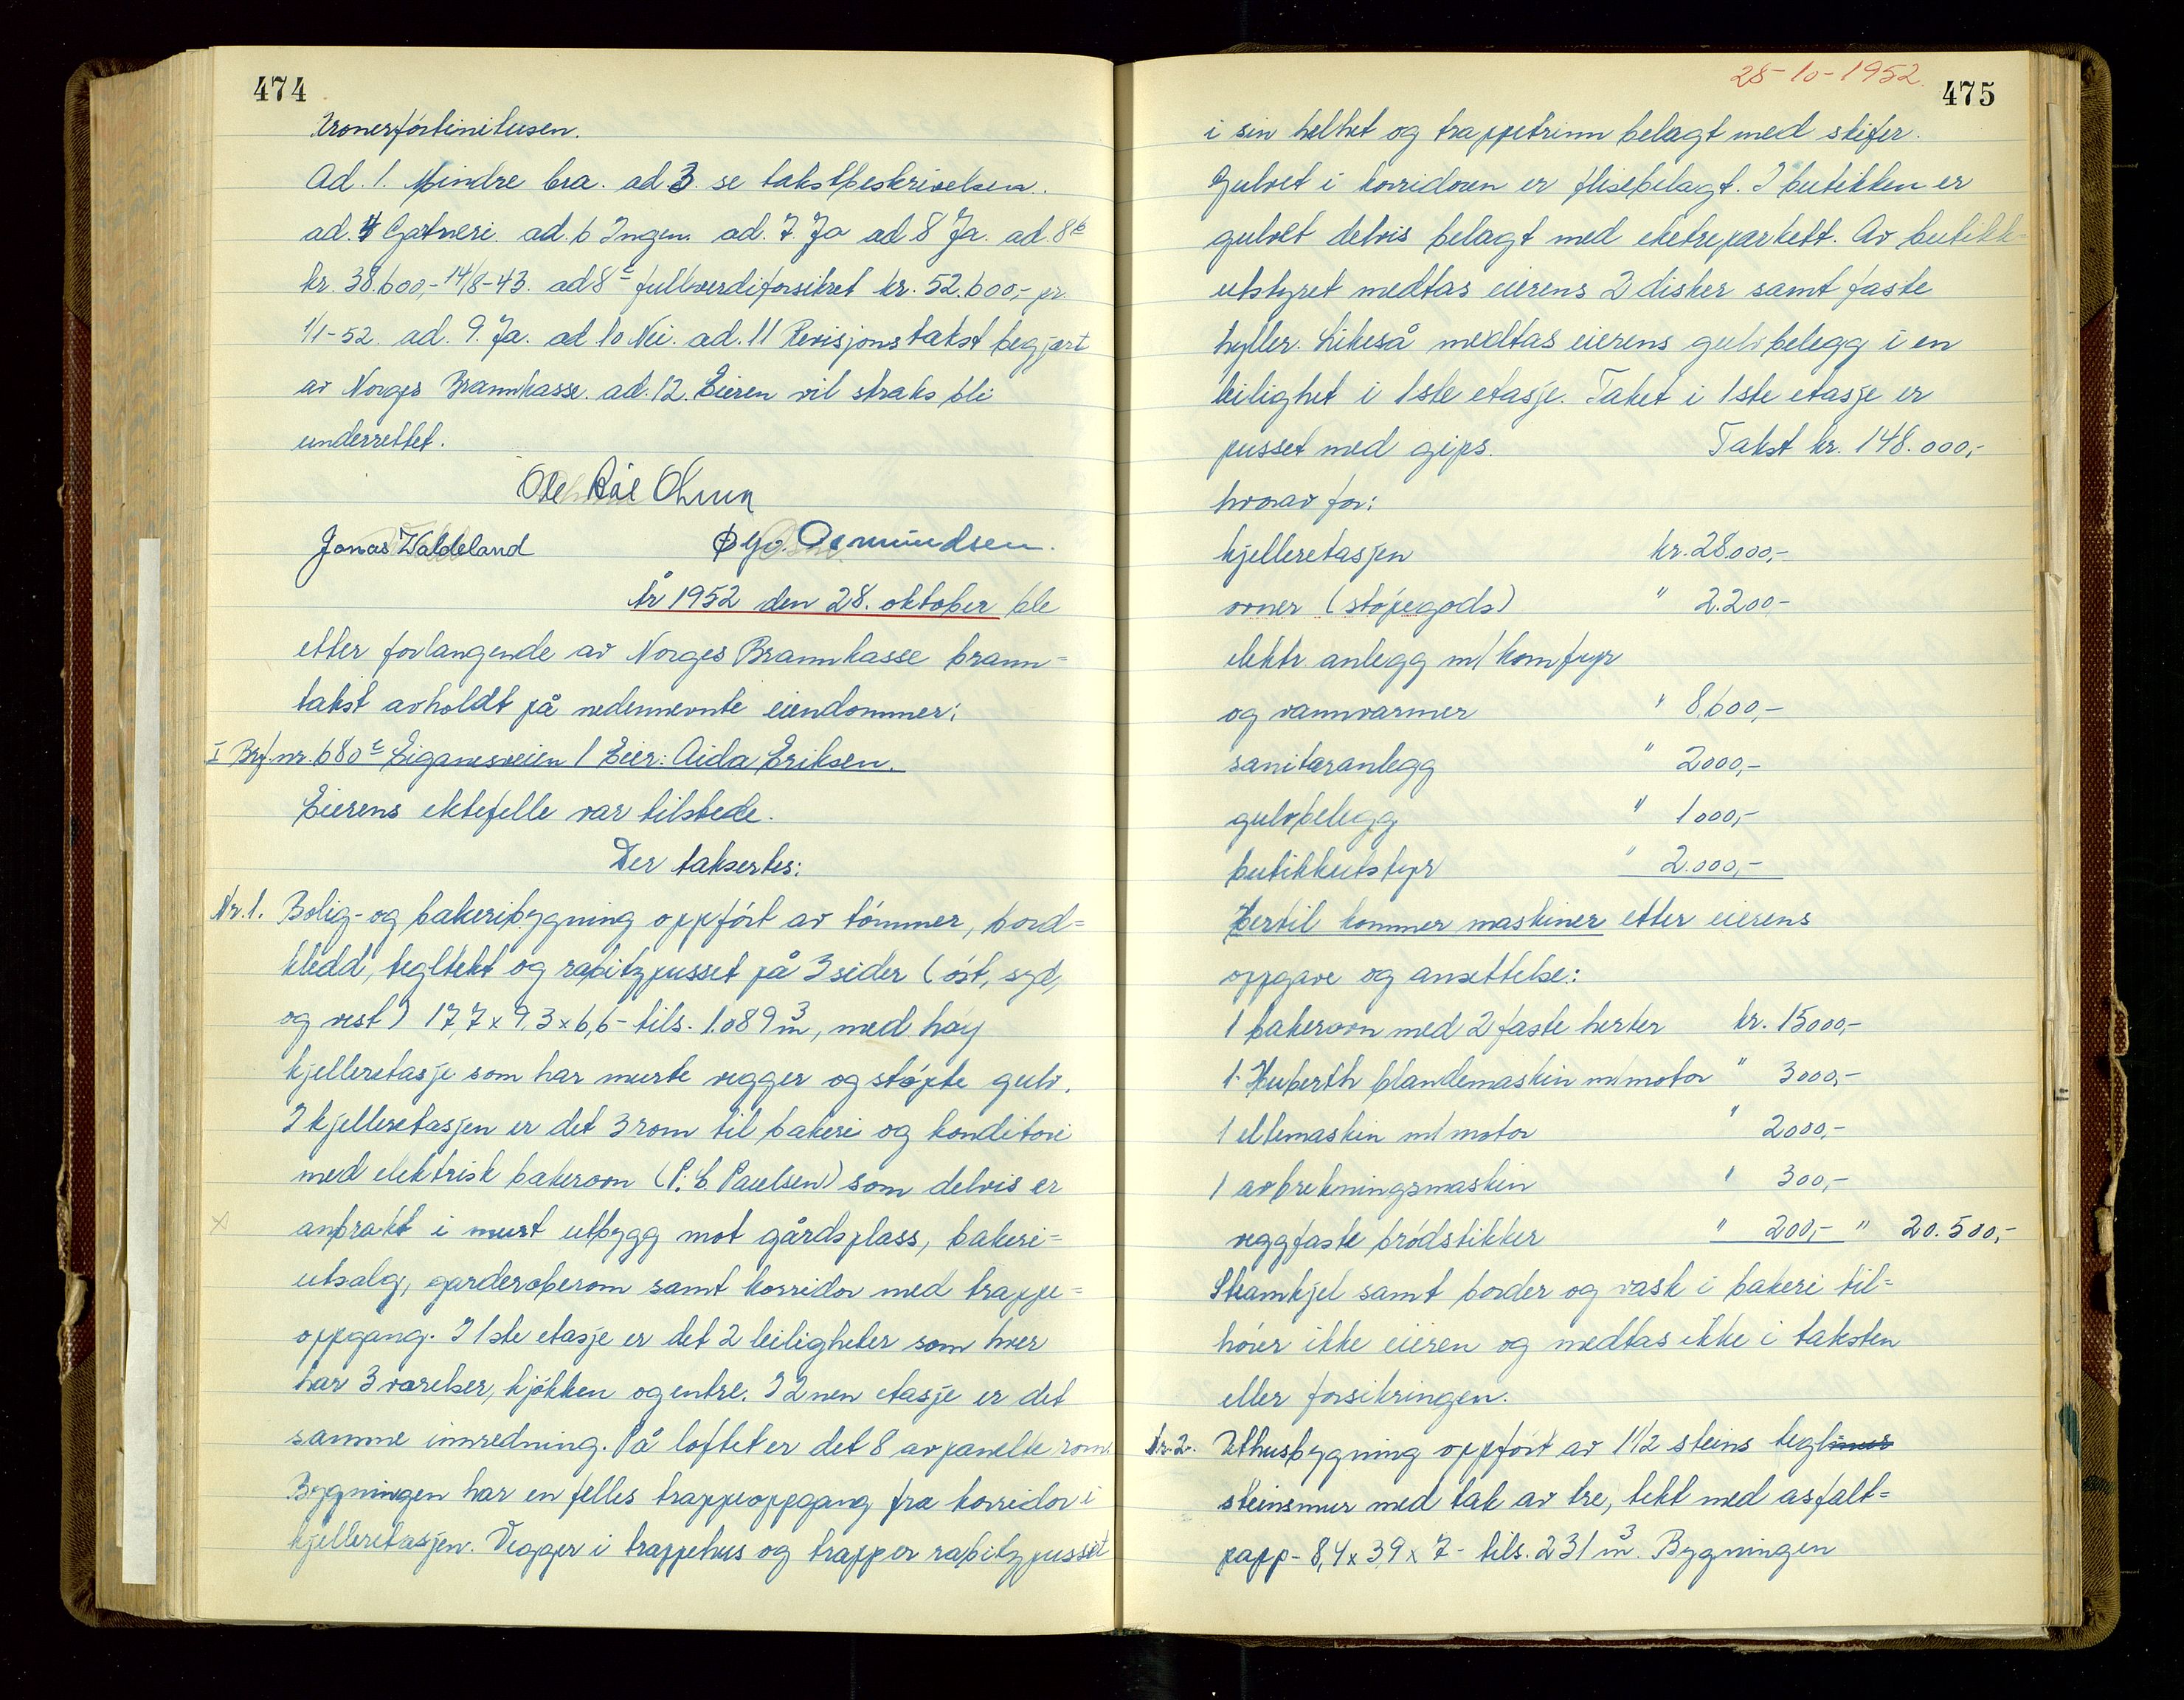 474
Kronerførtinitusen.
Ad. 1. Mindre bra. ad. 3. se takstbeskrivelsen.
ad. 4 Gartneri. ad. 6 Ingen. ad. 7. Ja ad. 8 Ja. ad. 8b
kr. 38.600,- 14/8-43. ad 8c fullverdiforsikret kr. 52.600,- pr.
1/1-52. ad. 9. Ja. ad 10 Nei. ad. 11 Revisjonstakst begjært
av Norges Brannkasse. ad. 12. Eieren vil straks bli
underrettet.
Jonas Waldeland
Asmundsen.
År 1952 den 28. oktober ble
etter forlangende av Norges Brannkasse brann=
takst avholdt på nedennevnte eiendommer:
I Brf.nr. 680c Eiganesveien 1 Eier: Aida Eriksen.
Eierens ektefelle var tilstede.
Der taksertes:
Nr. 1. Bolig- og bakeribygning oppført av tømmer, bord=
kledd, tegltekt og rabitzpusset på 3 sider (øst, syd,
og vest) 17,7 x 9,3 x 6,6 - tils. 1.089 m3, med høy
kjelleretasje som har murte vegger og støpte gulv.
I kjelleretasjen er det 3 rom til bakeri og konditori
med elektrisk bakerovn (P. C. Paulsen) som delvis er
x anbrakt i murt utbygg mot gårdsplass, bakeri=
utsalg, garderoberom samt korridor med trappe=
oppgang. I 1ste etasje er det 2 leiligheter som hver
har 3 værelser, kjøkken og entre. I 2nen etasje er det
samme innredning. På loftet er det 8 avpanelte rom.
Bygningen har en felles trappeoppgang fra korridor i
kjelleretasjen. Vegger i trappehus og trapper rabitzpusset
28-10-1952.
475
i sin helhet og trappetrinn belagt med skifer.
Gulvet i korridoren er flisebelagt. I butikken er
gulvet delvis belagt med eketreparkett. Av butikk=
utstyret medtas eierens 2 disker samt faste
hyller. Likeså medtas eierens gulvbelegg i en
leilighet i 1ste etasje. Taket i 1ste etasje er
pusset med gips. Takst kr. 148.000,-
hvorav for:
kjelleretasjen kr. 28.000,-
ovner (støpegods) " 2.200,-
elektr anlegg m/ komfyr
og vannvarmer " 8.600,-
sanitæranlegg " 2000,-
gulvbelegg " 1000,-
butikkutstyr " 2.000,-
Hertil kommer maskiner etter eierens
oppgave og ansettelse:
1 bakerovn med 2 faste herter kr. 15000,-
1 Huberth blandemaskin m/motor " 3000,-
1 eltemaskin m/ motor " 2000,-
1 avbrekningsmaskin " 300,-
veggfaste brødstikker " 200,- " 20.500,-
Steamkjel samt border og vask i bakeri til=
hører ikke eieren og medtas ikke i taksten
eller forsikringen.
Nr. 2. Uthusbygning oppført av 1 1/2 steins teglmur
steinsmur med tak av tre, tekt med asfalt=
papp - 8,4 x 3,9 x 7 - tils. 231 m3. Bygningen